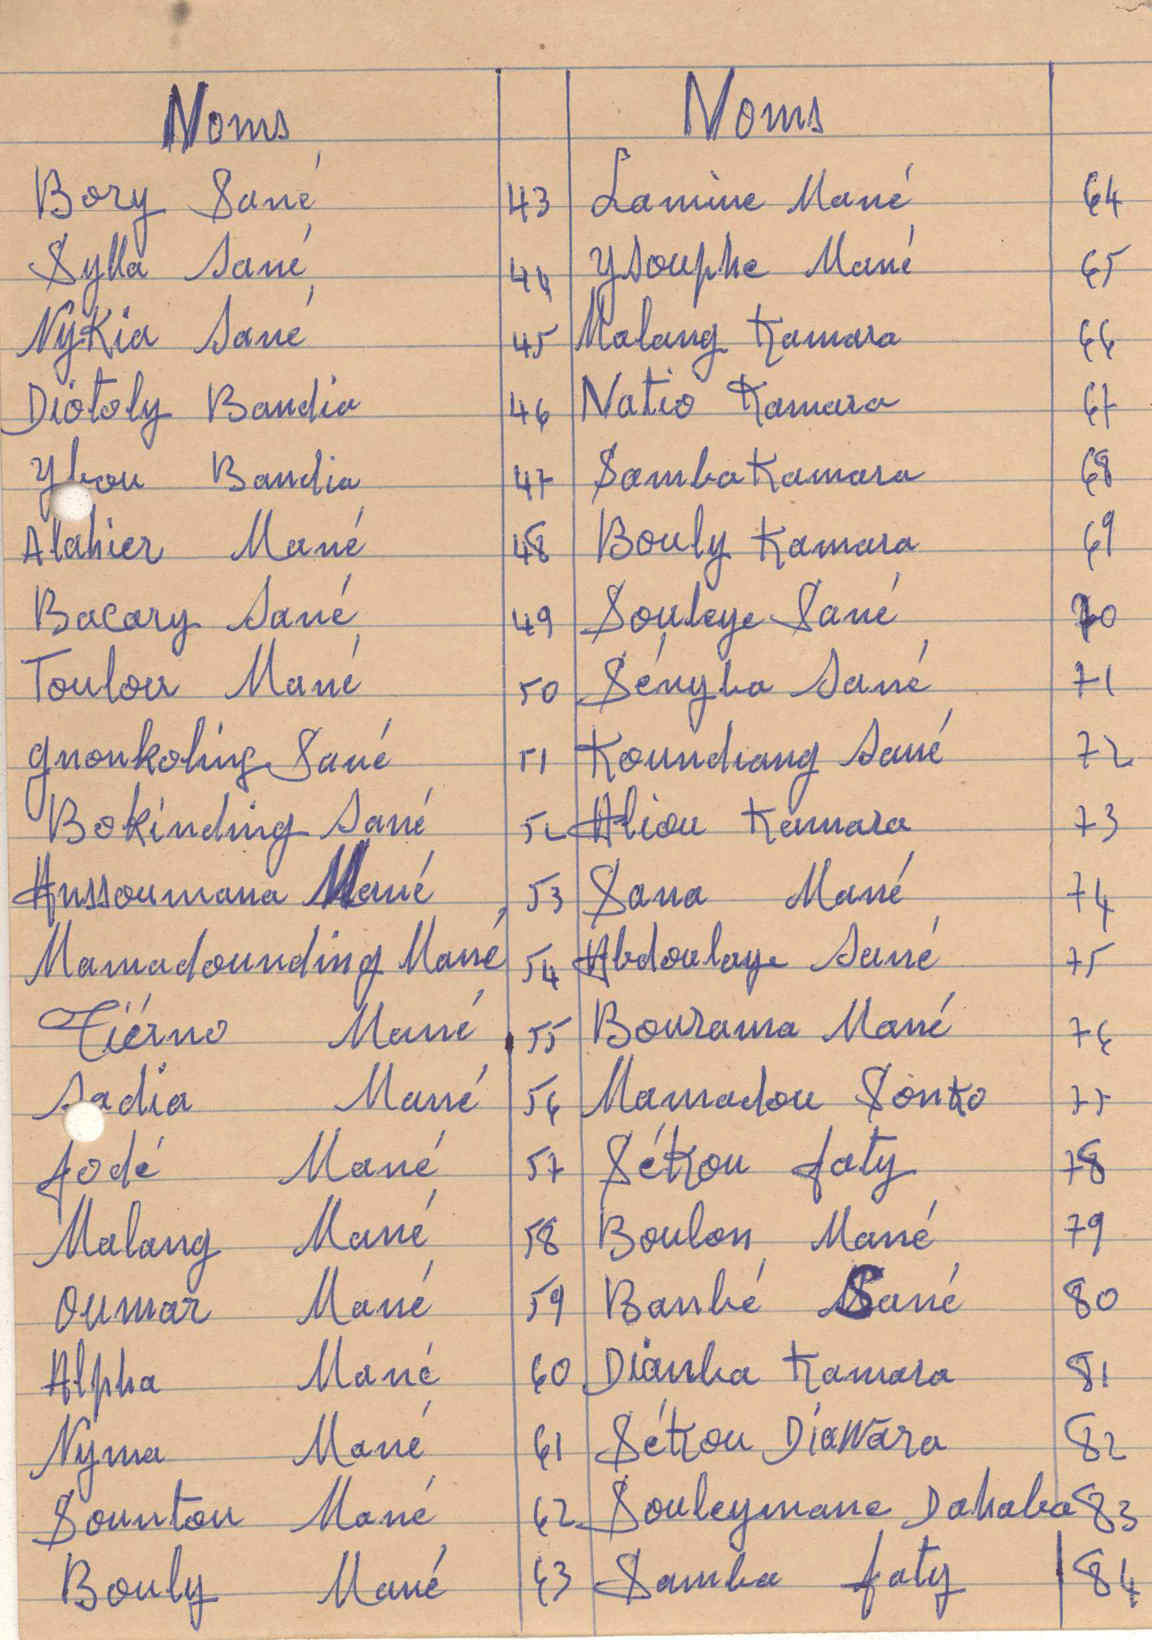 Noms Noms
Bory Sané 43 Lamine Mané 64
Sylla Sané 44 Ysouphe Mané 65
Nykia Sané 45 Malang Kamara 66
Diotoly Bandia 46 Natio Kamara 67
Ybou Bandia 47 Samba Kamara 68
Alahier Mané 48 Bouly Kamara 69
Bacary Sané 49 Souleye Sané 70
Toulou Mané 50 Sényba Sané 71
gnonkoling Sané 51 Koundiang Sané 72
Bokinding Sané 52 Aliou Kamara 73
Anssoumana Mané 53 Sana Mané 74
Mamadounding Mané 54 Abdoulaye Sané 75
Tiérno Mané 55 Bourama Mané 76
Sadia Mané 56 Mamadou Sonko 77
fodé Mané 57 Sékou faty 78
Malang Mané 58 Boulon Mané 79
Oumar Mané 59 Banbé Sané 80
Alpha Mané 60 Dianba Kamara 81
Nyma Mané 61 Sékou Diawara 82
Sountou Mané 62 Souleymane Dahaba 83
Bouly Mané 63 Samba faty 84